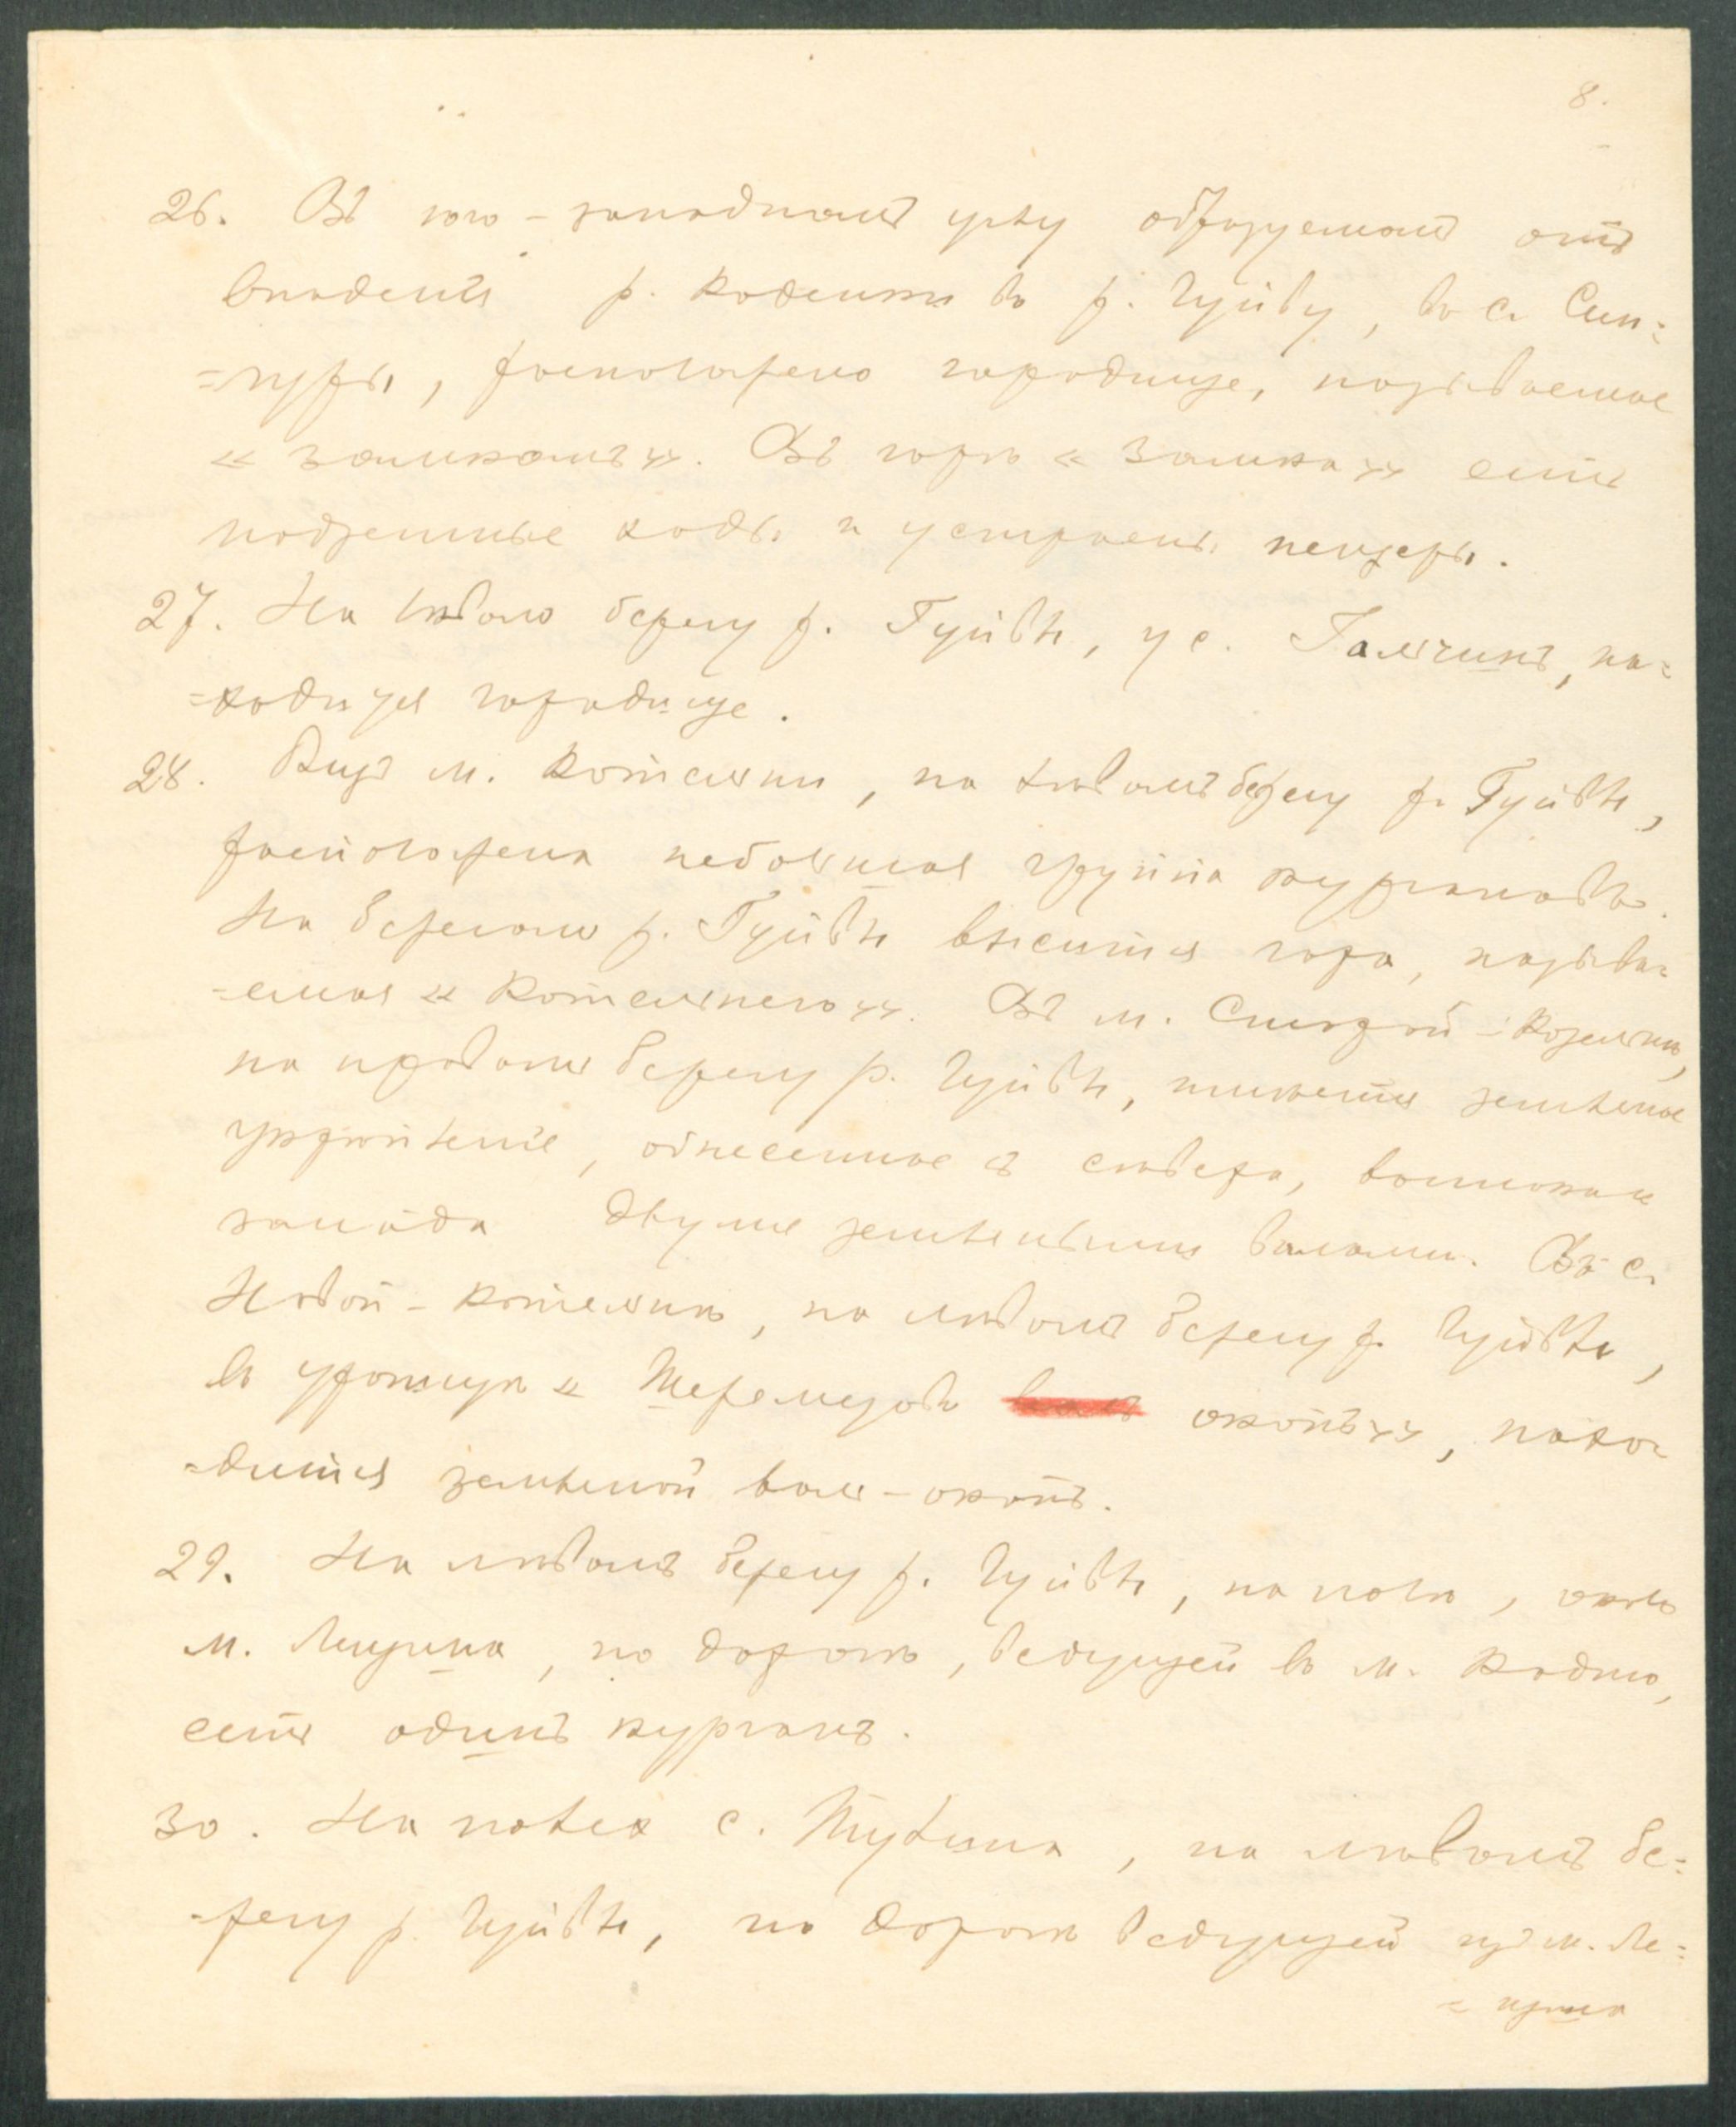 8.
26. Въ юго-западномъ углу образуемомъ отъ
впаденія р. Коденки въ р. Гуйву, въ с. Син=
=гуры, расположено городище, называемое
« замкомъ ». Въ горѣ « замка » есть
подземные ходы и устроены пещеры.
27. На лѣвомъ берегу р. Гуйвы, у с. Гальчинъ, на=
=ходится городище.
28. Близъ м. Котельни, на лѣвомъ берегу р. Гуйвы,
расположена небольшая группа кургановъ.
На берегомъ р. Гуйвы высится гора, называ=
=емая « Котельнею ». Въ м. Старой-Котельнѣ,
на правомъ берегу р. Гуйвы, имѣется земляное
укрѣпленіе, обнесенное съ сѣвера, востока и
запада двумя земляными валами. Въ с.
Новой-Котельнѣ, на лѣвомъ берегу р. Гуйвы,
въ урочищѣ « окопъ », нахо=
=дится земляной валъ-окопъ.
29. На лѣвомъ берегу р. Гуйвы, на полѣ, около
м. Лещина, по дорогѣ, ведущей въ м. Кодню,
есть одинъ курганъ.
30. На поляхъ с. , на лѣвомъ бе=
=регу р. Гуйвы, по дорогѣ ведущей изъ м. Ле=
=щина